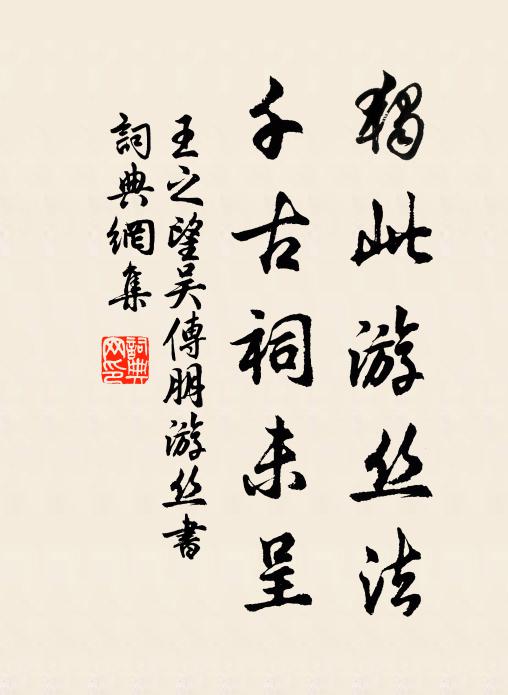 獨此游丝法
千古祠未呈
王之望吴傅朋游丝書
詞典網集
詞典
网印